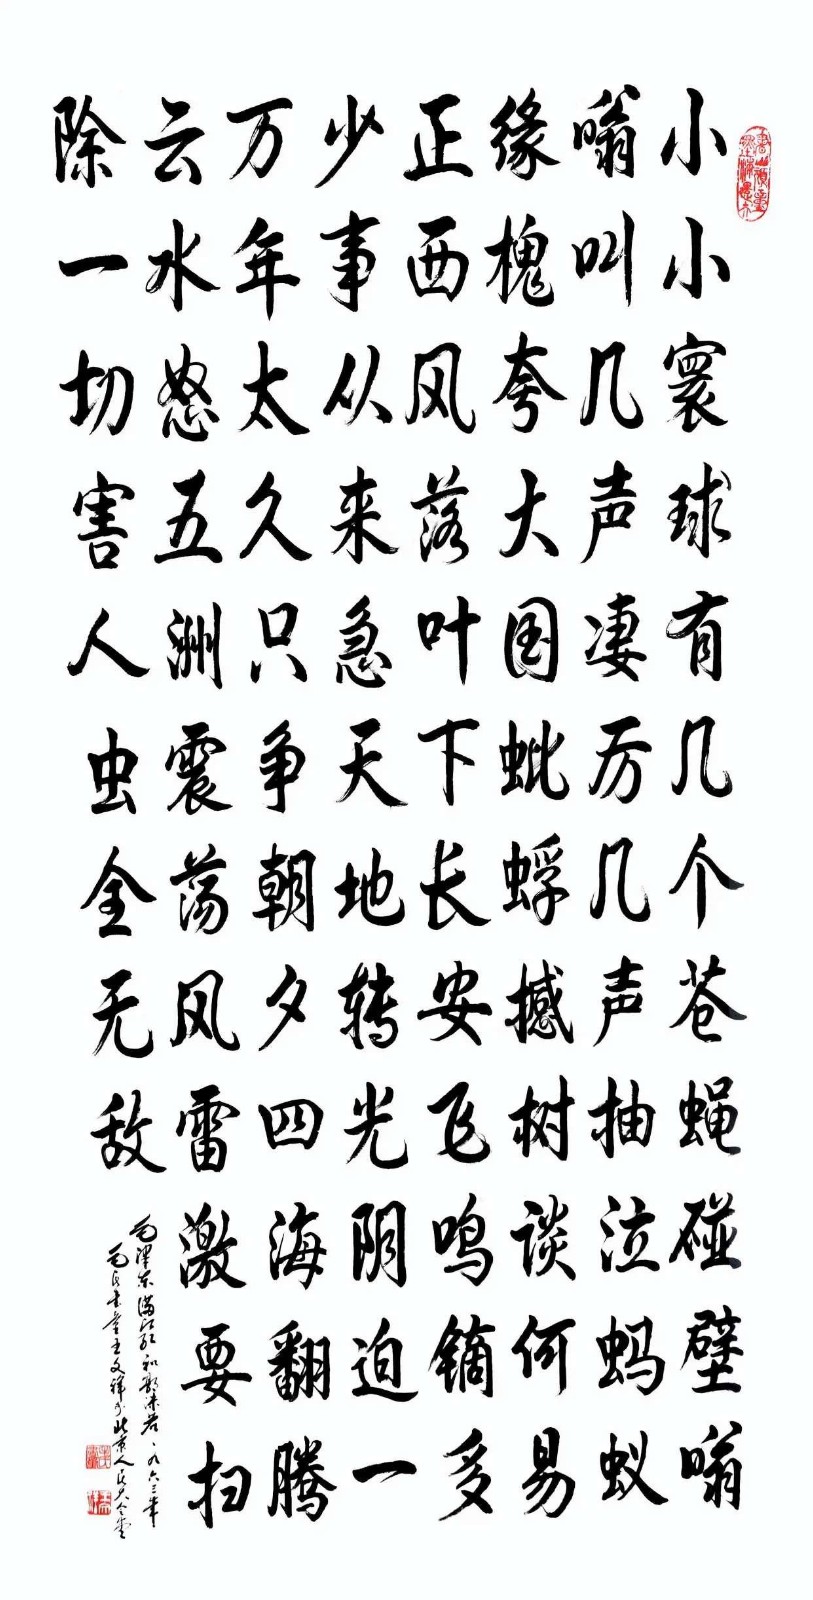 小小寰球有几个苍蝇碰壁嗡
嗡叫几声凄厉几声抽泣蚂蚁
缘槐夸大国蚍蜉撼树谈何易
正西风落叶下长安飞鸣镝多
少事从来急天地转光阴迫一
万年太久只争朝夕四海翻腾
云水怒五洲震荡风雷激要扫
除一切害人虫全无敌
毛泽东满江红和郭沫若一九六三年
毛氏书童王文祥于北京人民大会堂